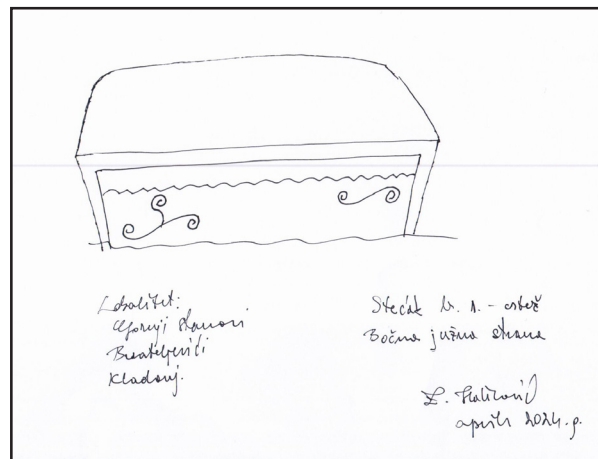 Lokalitet:
Gornji Stanovi
Brateljevići
Kladanj.
Stećak br. 1. -
Bočna južna strana
april 2024. g.